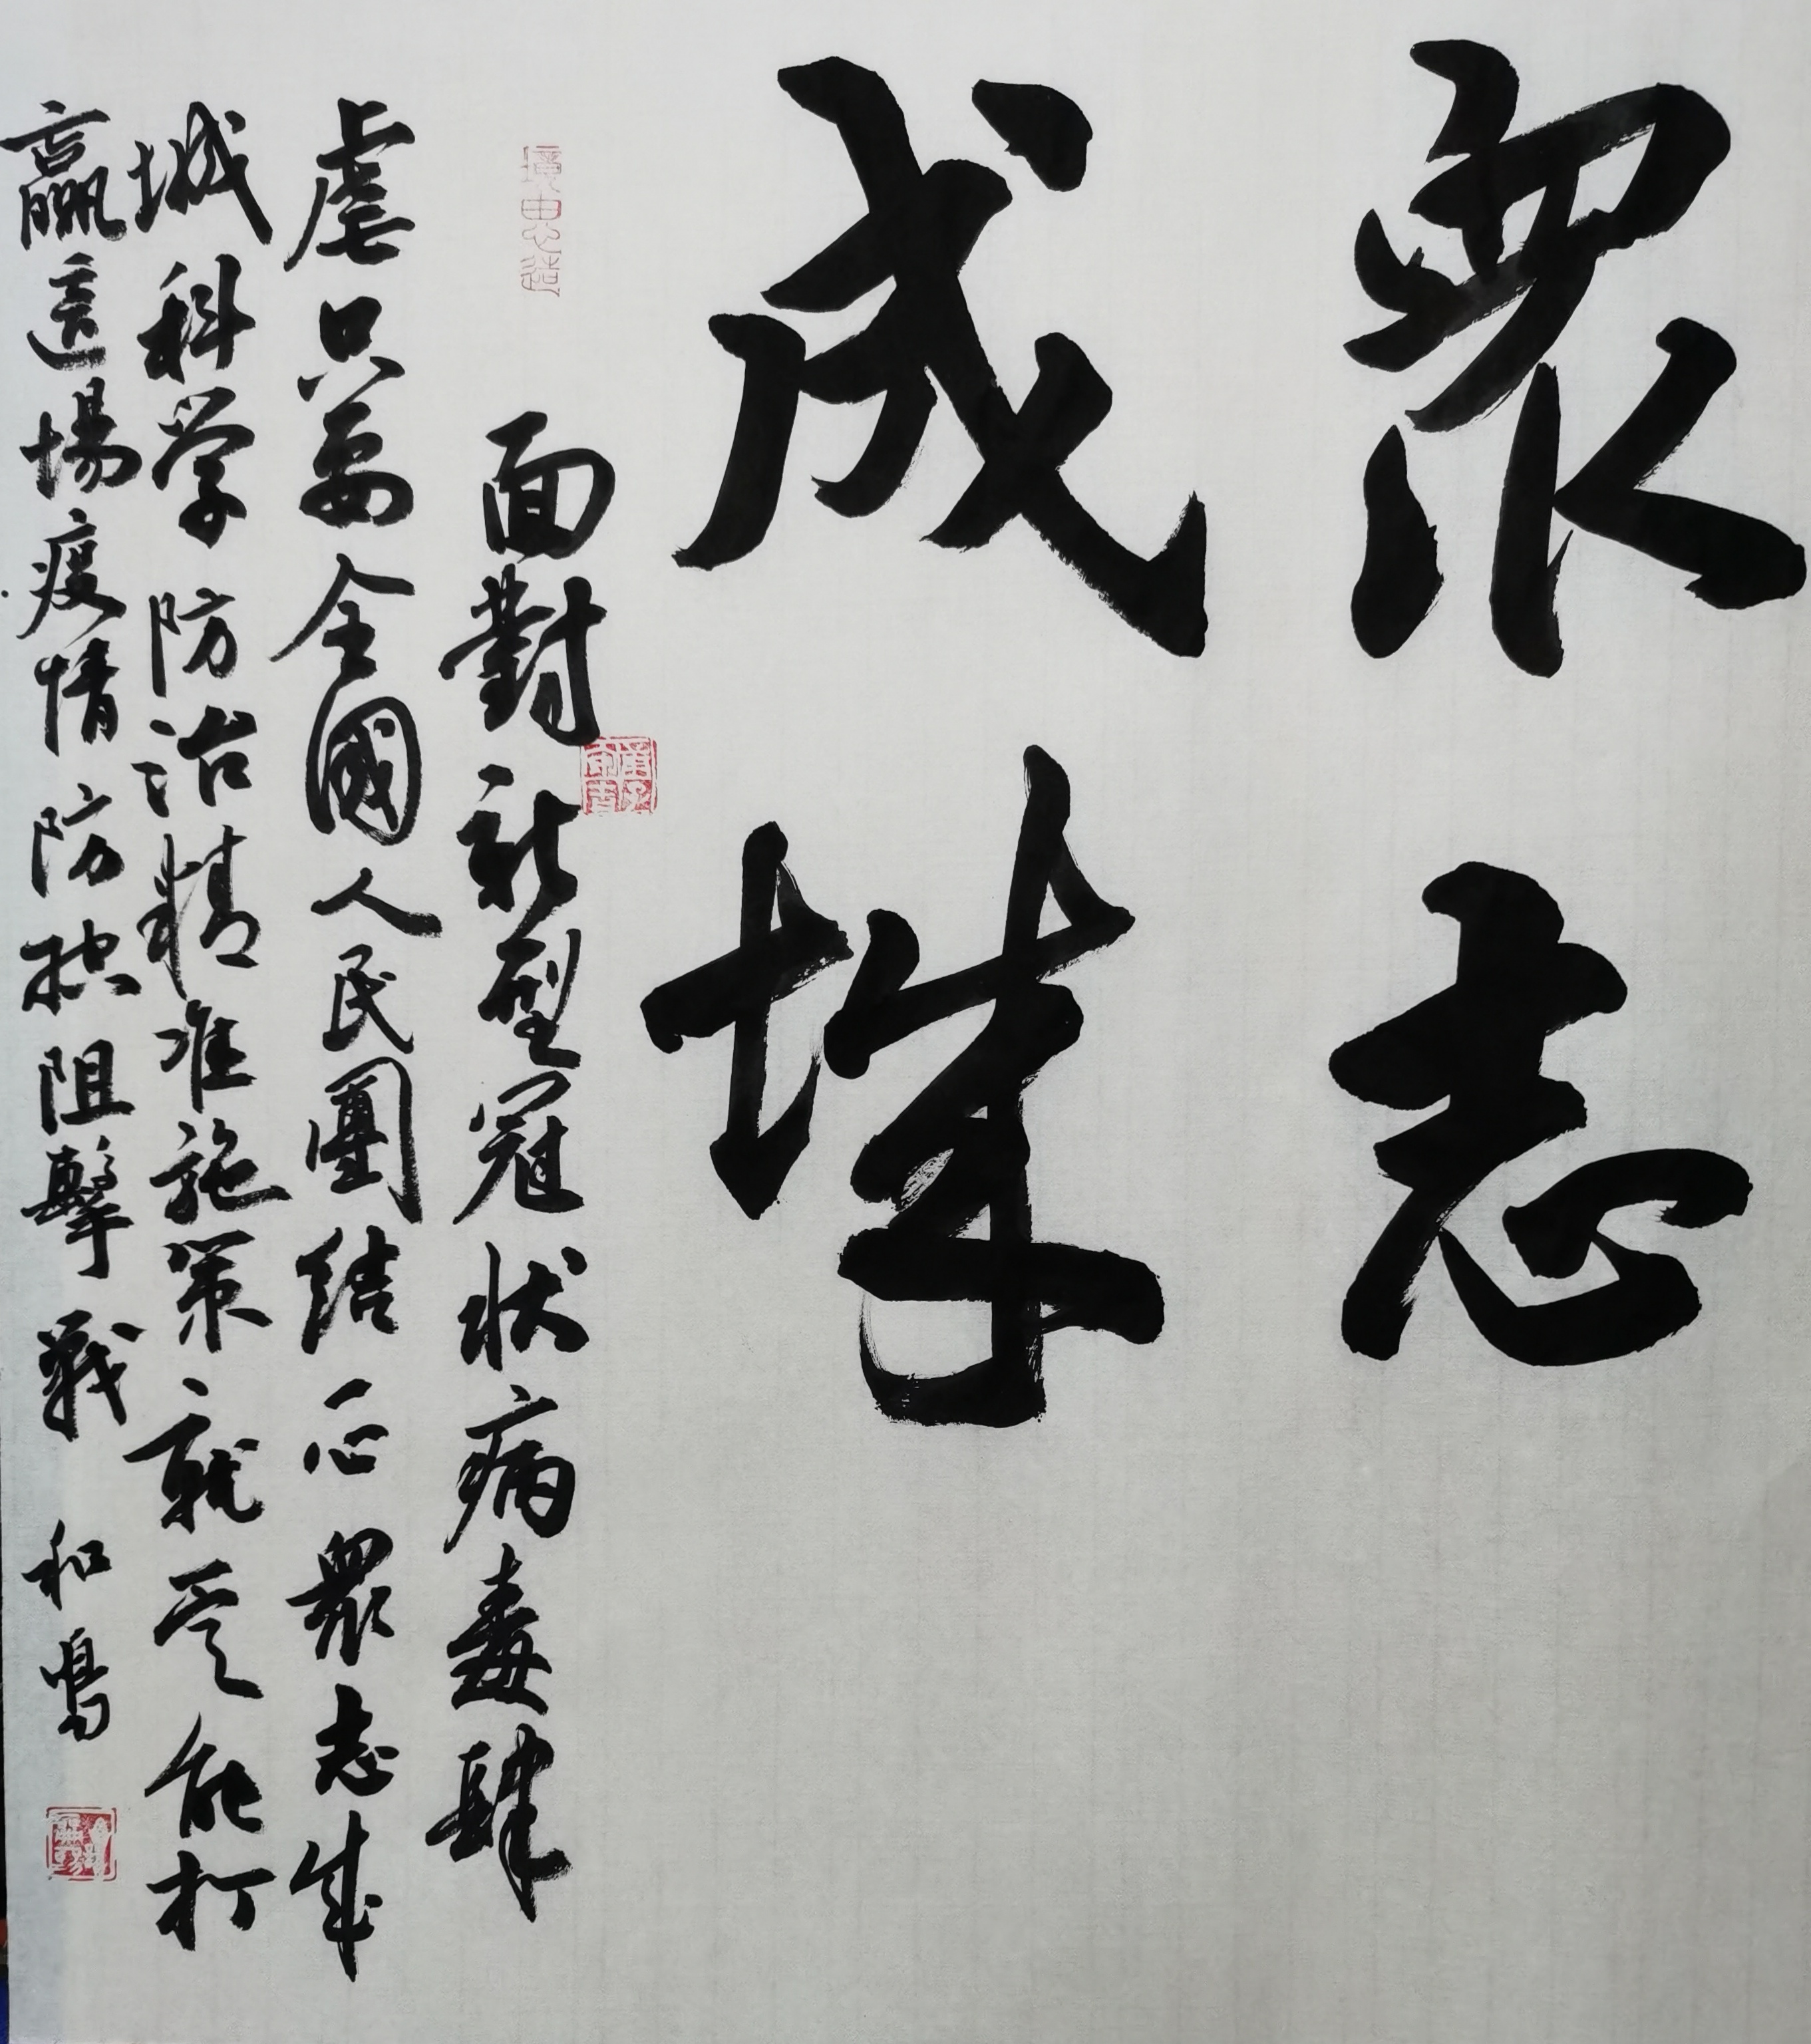 眾志
成城
面對新型冠狀病毒肆
虐只要全國人民團結一心眾志成
城科学防治精准施策就一定能打
贏這場疫情防控阻擊戰 和鳴